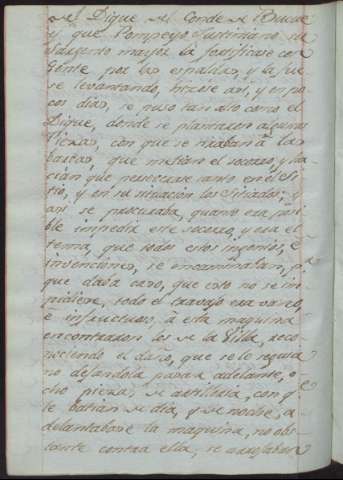 del Dique del Conde de Bucoi
y que Pompeyo Justiniano su
Sargento mayor la fortificase con
Gente, por las espaldas, y la fue
se levantando, hizose así, y en po
cos dias, se puso tan alto como el
Dique, donde se plantaron algunas
Piezas, con que se tiraban à las
barcas, que metian el socorro, y ha
cian que perseverasen en el Si
tio, y en su situacion los Sitiados; y
asi se procuraba, quanto era posi
ble impedir este socorro, y era el
tema, que todos estos ingenios, è
invenciones, se encaminaban, p.r
que dada caso, que esto no se im
pidiere, todo el trabajo era vano,
è infructuoso, à esta maquina
encontraron los de la Villa, reco
nociendo el daño, que se les seguia
no dejandola pasar adelante, o
cho piezas de artilleria, con q.e
le batian de dia, y de noche, a
delantabase la maquina, no obs
tante contra ella, se